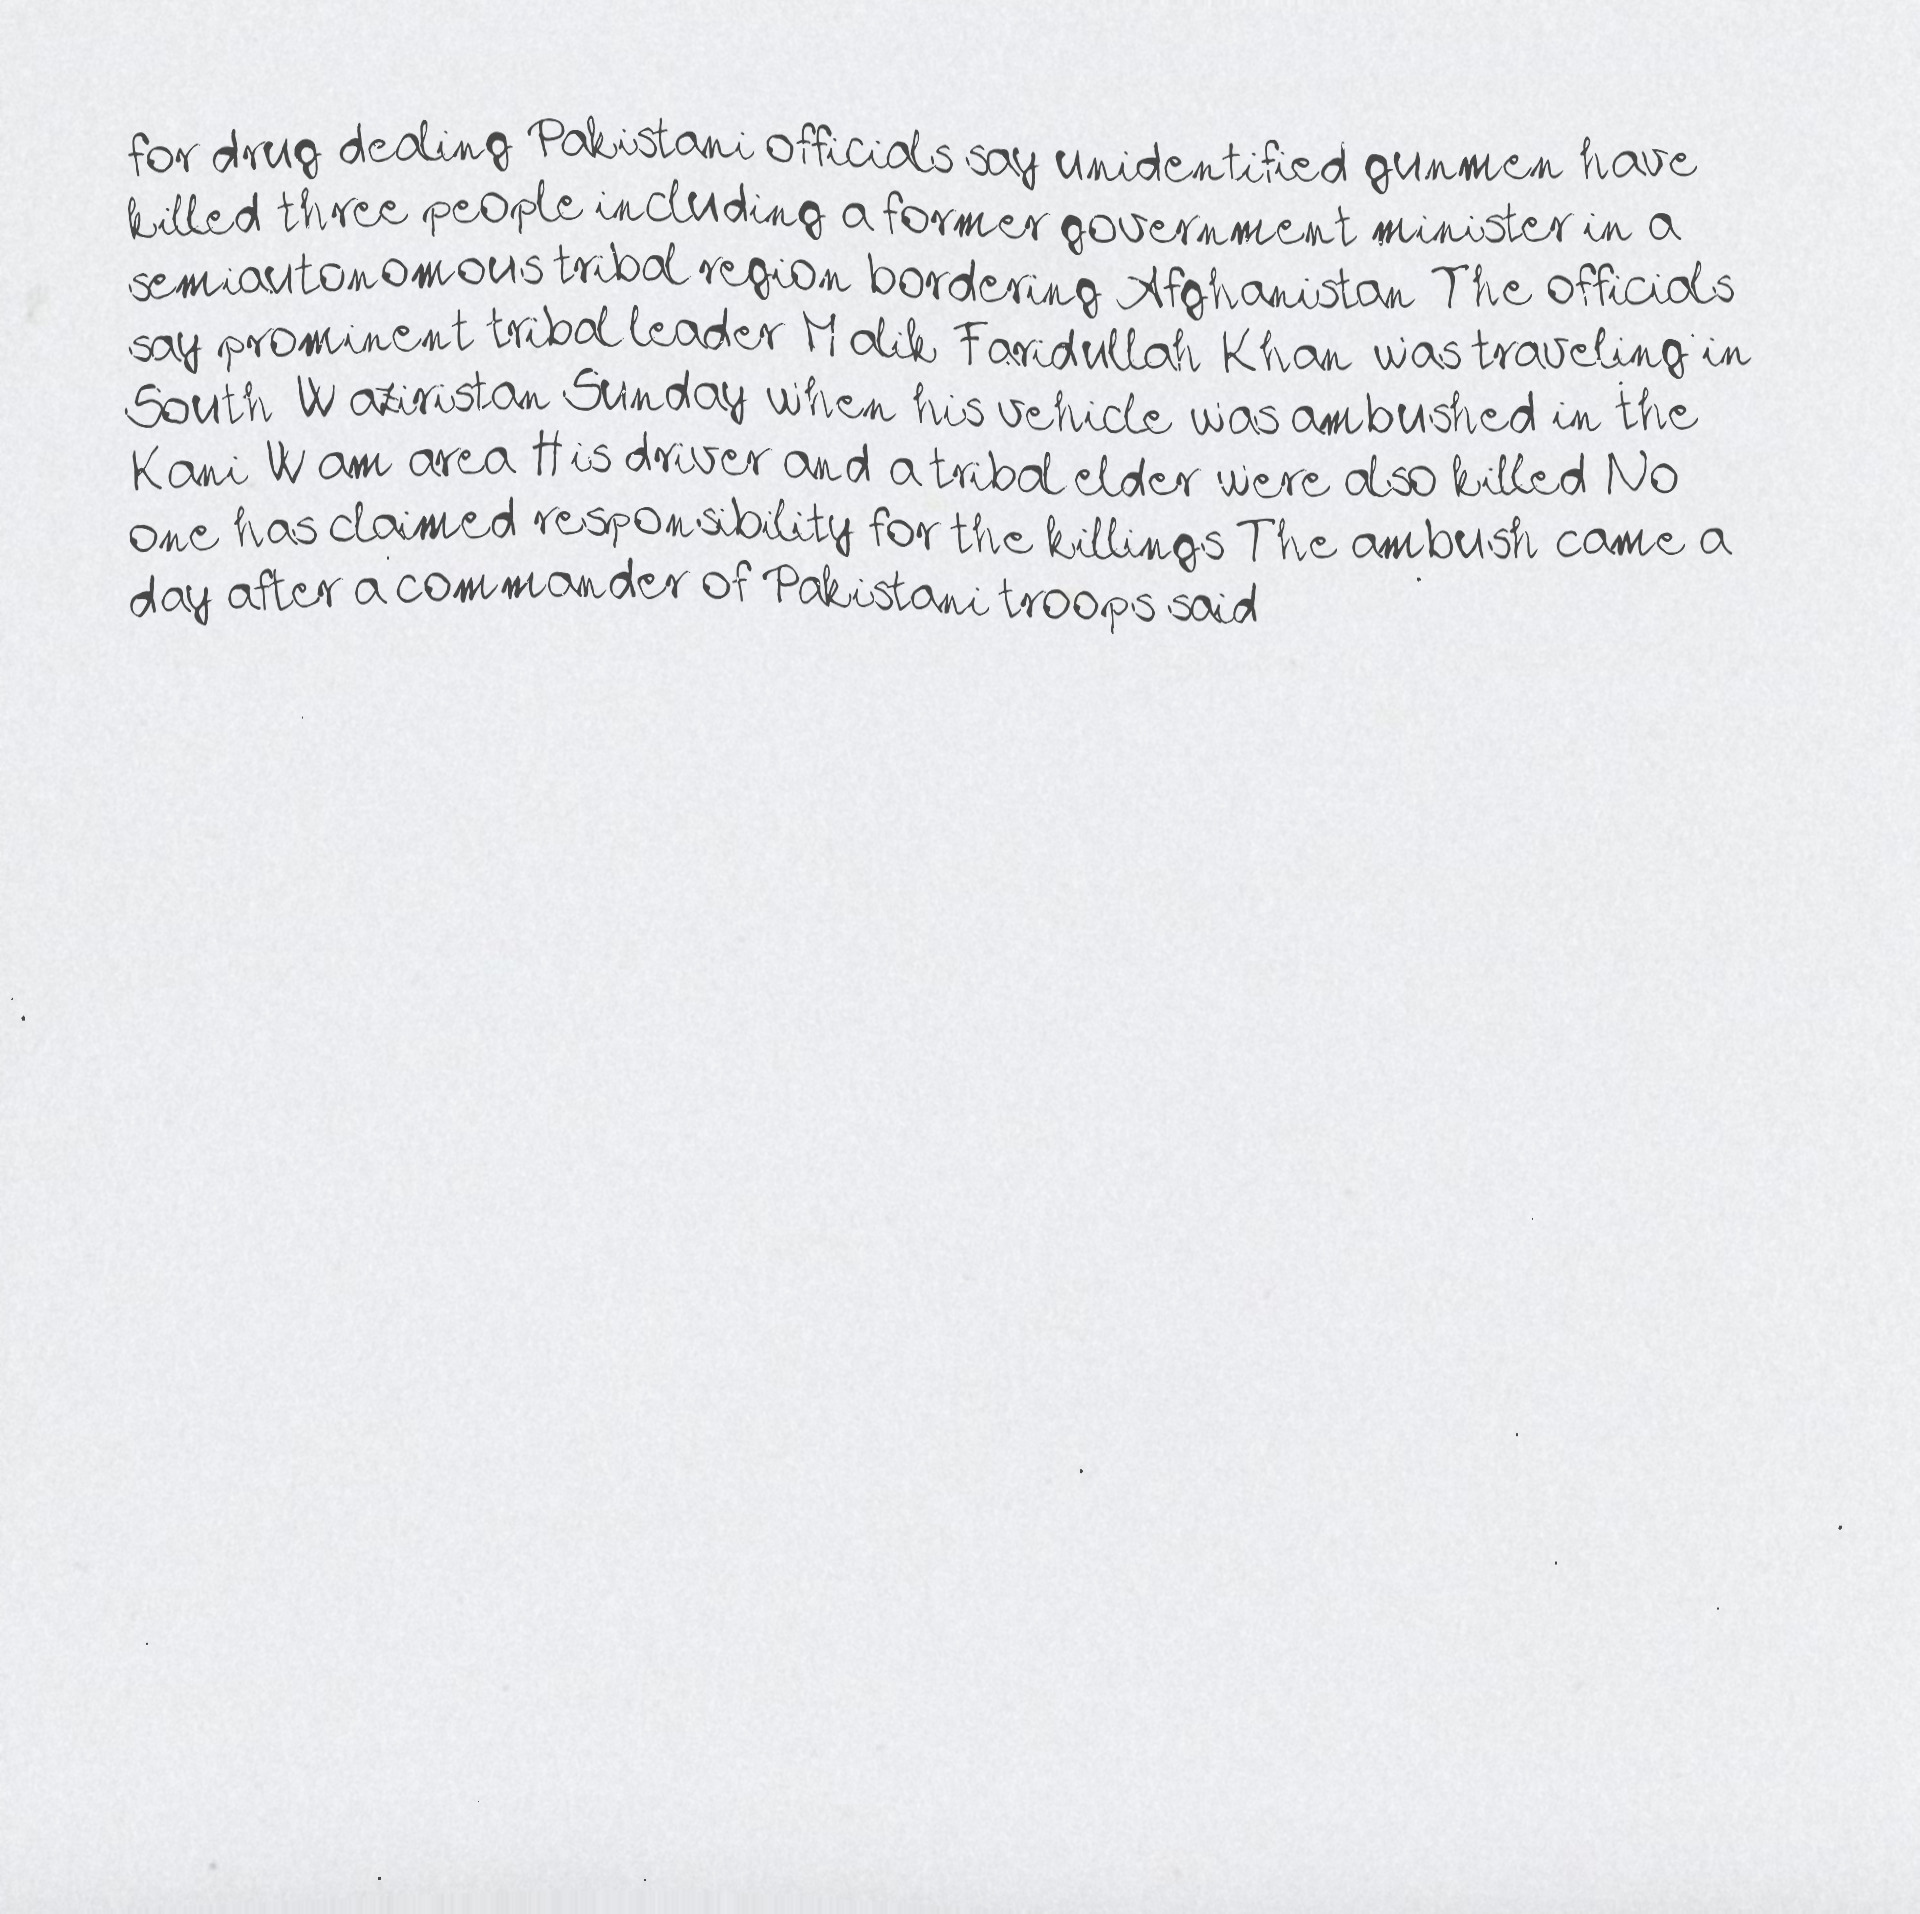 for drug dealing Pakistani officials say unidentified gunmen have
killed three people including a former government minister in a
semiautonomous tribal region bordering Afghanistan The officials
say prominent tribal leader Malik Faridullah Khan was traveling in
South Waziristan Sunday when his vehicle was ambushed in the
Kani Wam area His driver and a tribal elder were also killed No
one has claimed responsibility for the killings The ambush came a
day after a commander of Pakistani troops said